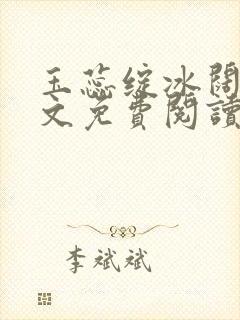 玉蕊绽冰闊
文免費閱讀
李斌斌